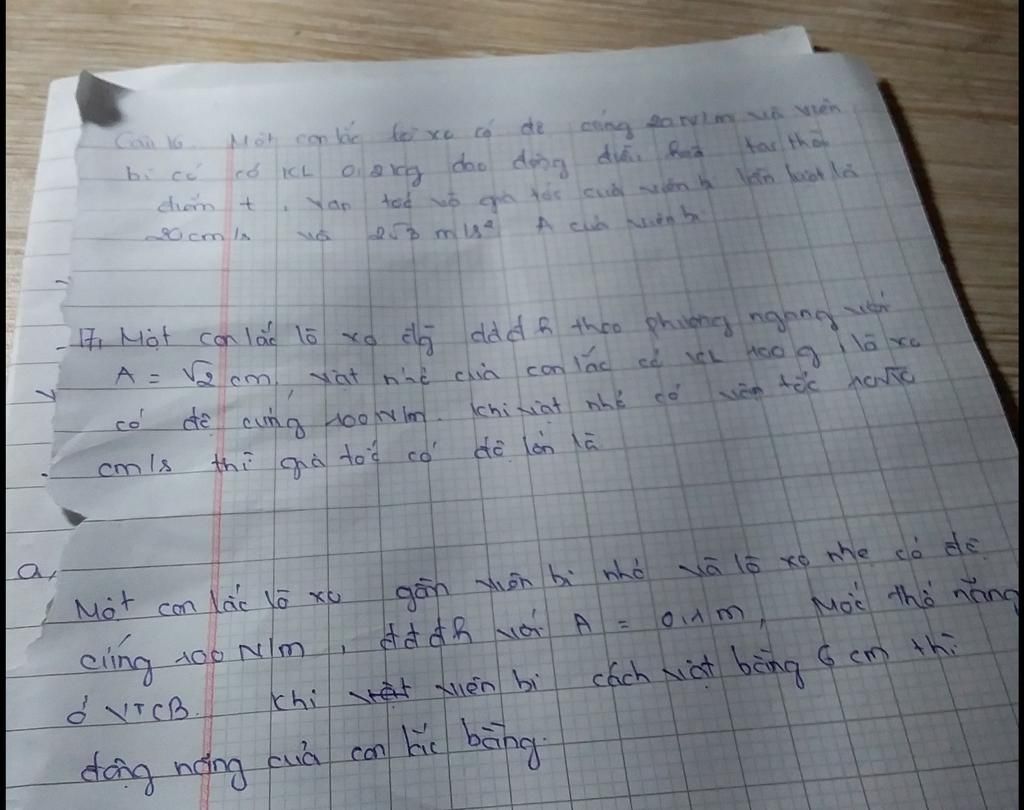 Câu 16. Một con lắc lò xo có độ cứng 20N/m và viên
bi có có KL 0,2kg dao động điều hoà tại thời
điểm t, vận tốc và gia tốc của viên bi lần lượt là
20cm/s và 2√3 m/s² A của viên bi
17, Một con lắc lò xo dg dddh theo phương ngang với
A = √2 cm, vật nhỏ của con lắc có KL 100g, lò xo
có độ cứng 100N/m. Khi vật nhỏ có vận tốc
cm/s thì gia tốc có độ lớn là
a,
Một con lắc lò xo gồm viên bi nhỏ và lò xo nhẹ có độ
cứng 100N/m, dddh với A = 0,1m, Mốc thế năng
ở VTCB. Khi vật viên bi cách vật bằng 6 cm thì
động năng của con lắc bằng.